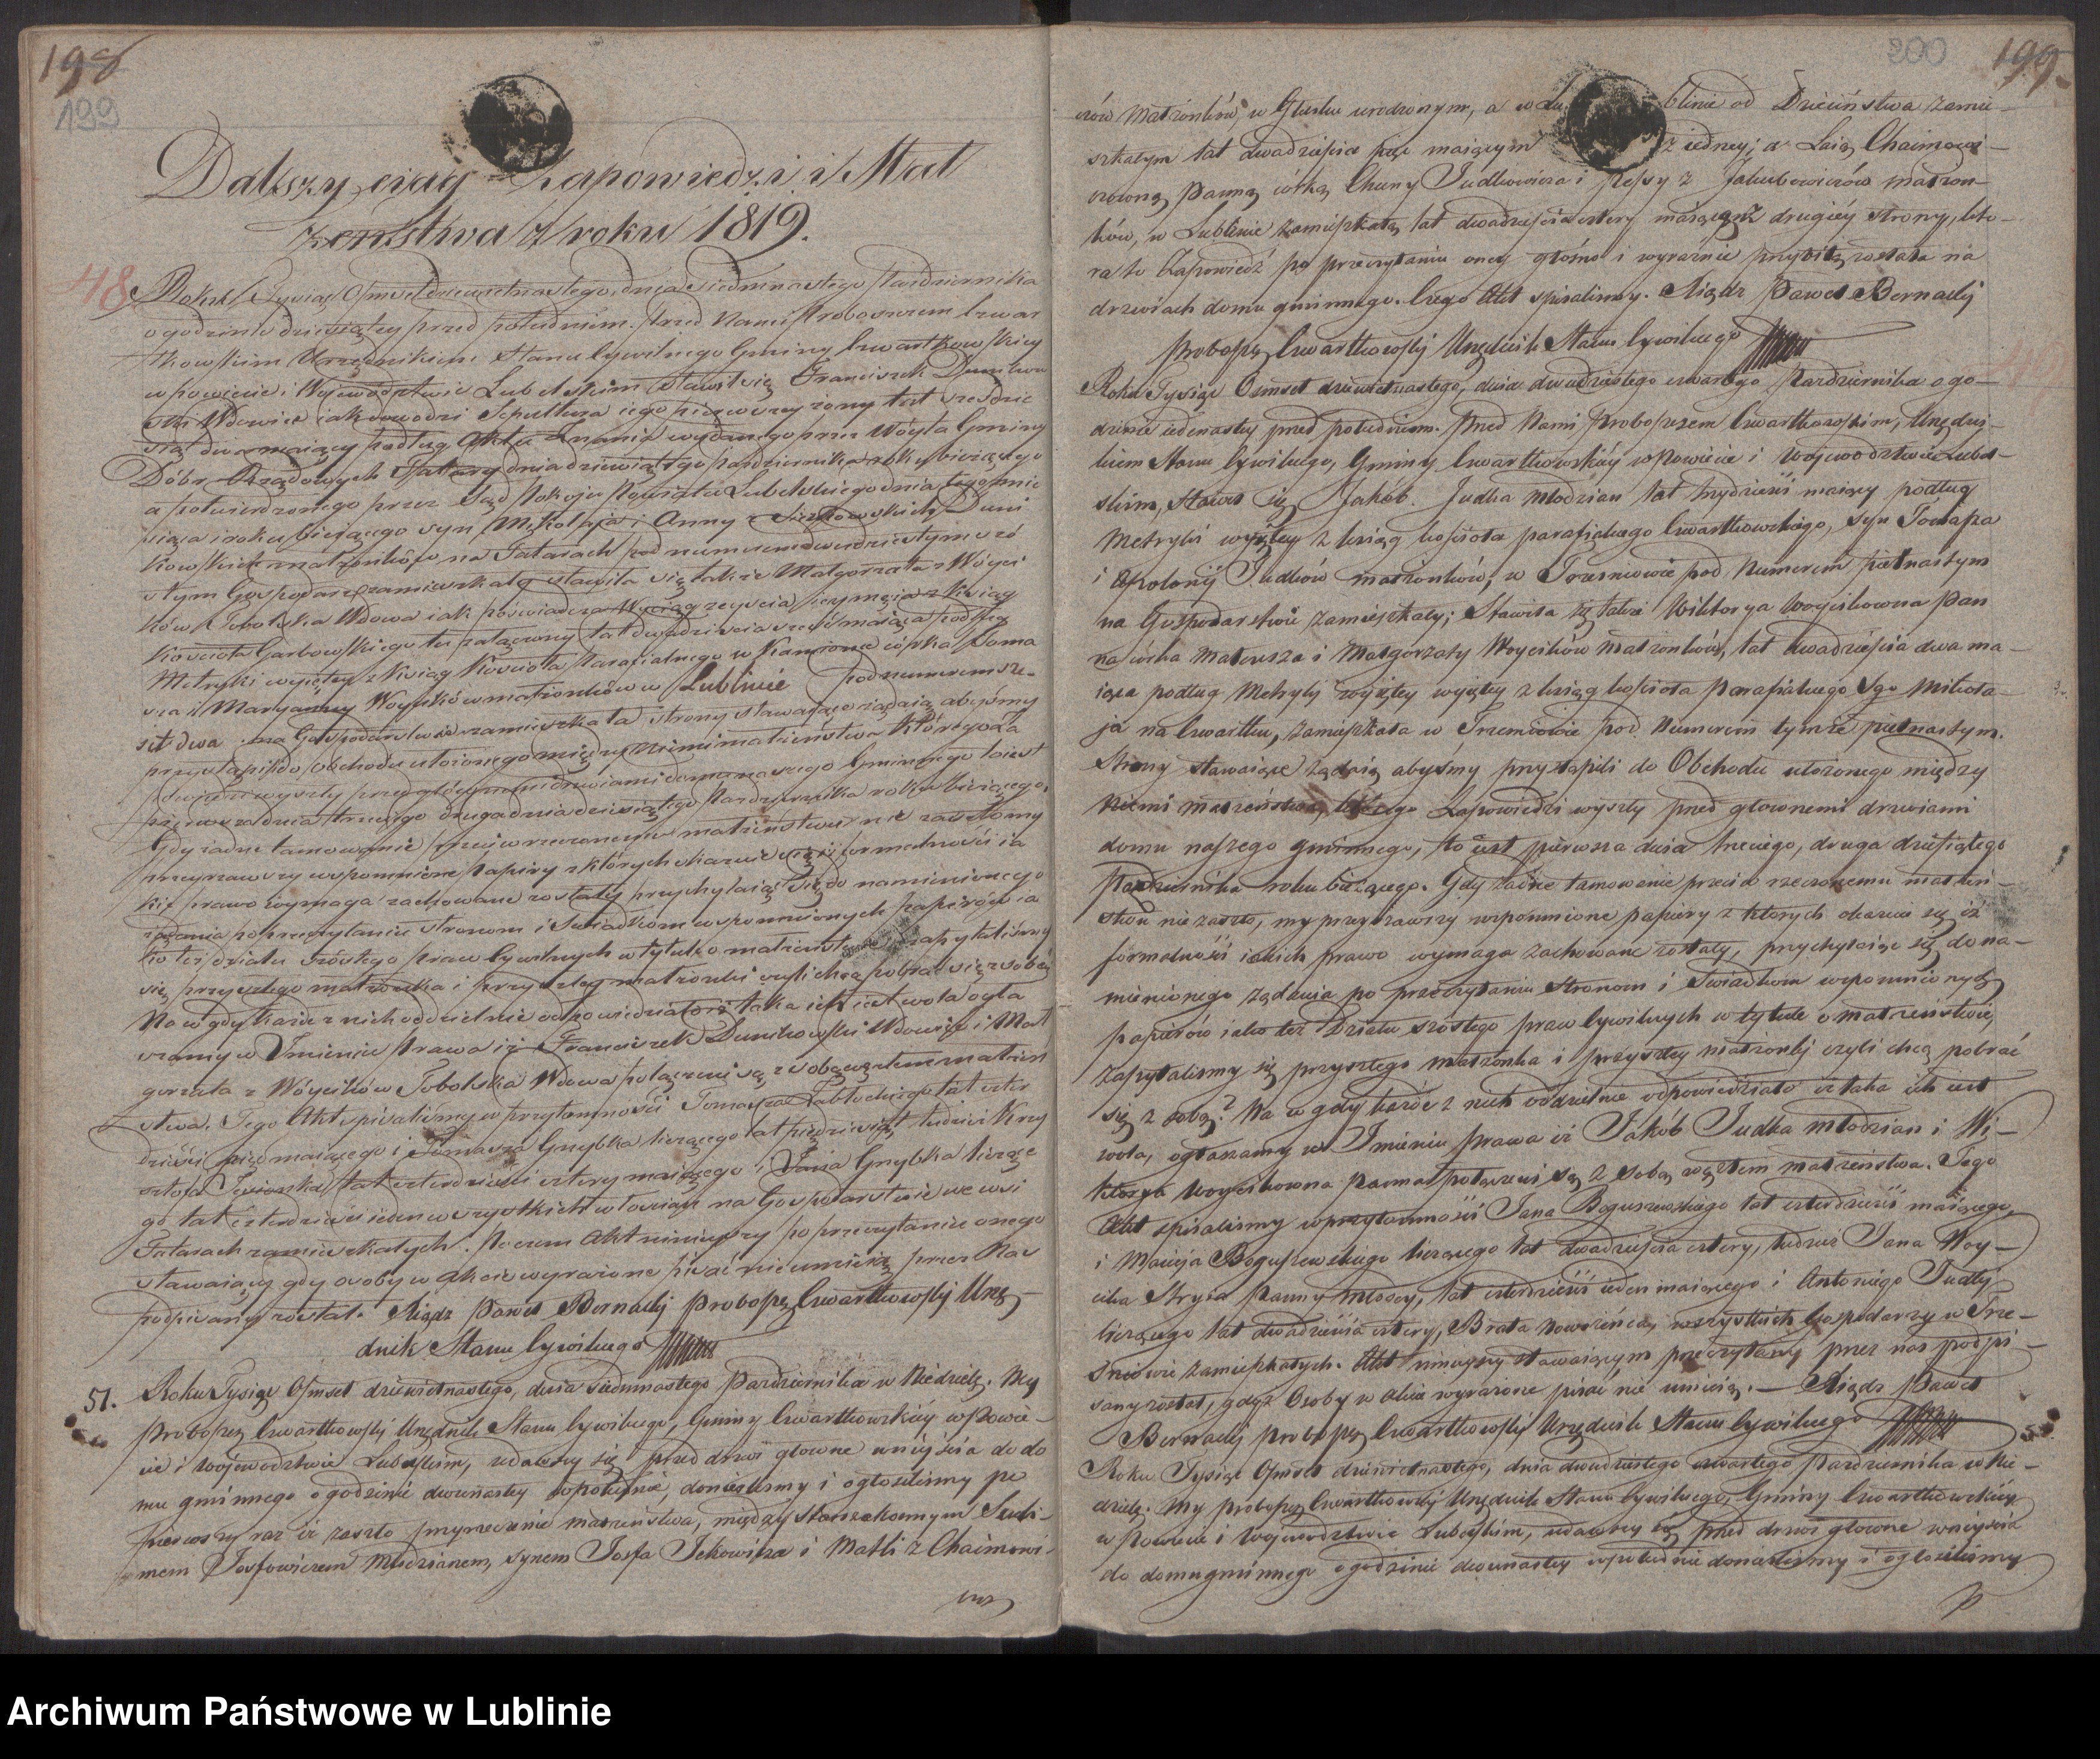 198
199
Dalszy ciąg Zapowiedzi i Mał
żeństwa z roku 1819.
48
Roku Tysiąc Ośmset dziewietnastego, dnia Siedmnastego Października
o godzinie dziesiątey przed południem. Przed Nami Proboszczem Czwar
tkowskim Urzędnikiem Stanu Cywilnego Gminy Czwartkowskiey
w powiecie i Woiewództwie Lubelskim stawił się Franciszek Dunikow
ski Wdowiec iak dowodzi Sepultura iego pierwszey żony lat
dwa maiący podług Aktu Znania wydanego przez Wóyta Gminy
Dóbr Rządowych Tatary dnia dziewiątego października roku bieżącego
a potwierdzonego przez Sąd Pokoju Powiatu Lubelskiego dnia tegoż mie
siąca i roku bieżącego syn Mikołaja i Anny z Duni
kowskich małżonków na Tatarach pod numerem dwudziestym szó
stym Gospodarz zamieszkały stawiła się także Małgorzata z Wóyci
ków Tobolska Wdowa iak poświadcza Wyciąg zeyścia iey męża z Ksiąg
Kościoła Garbowskiego tu załączony lat dwadzieścia sześć maiąca podług
Metryki wyiętey z Ksiąg Kościoła Parafialnego w Kamionce córka Toma
sza i Maryanny Woycików małżonków w Lublinie pod numerem sze-
set dwa na Gospodarstwie zamieszkała strony stawaiące żądaią abyśmy
przystąpili do obchodu ułożonego między niemi małżeństwa którego Za
powiedzi wyszły przed głównemi drzwiami domu naszego Gminnego to iest
pierwsza dnia trzeciego druga dnia dziesiątego Października roku bieżącego.
Gdy żadne tamowanie przeciw rzeczonemu małżeństwu nie zaszło my
przeyrzawszy wspomnione Papiery z których okazuie się iż formalności ia
kie prawo wymaga zachowane zostały przychylaiąc się do namienionego
żądania po przeczytaniu stronom i Świadkom wspomnionych papierów ia
ko też działu szóstego praw Cywilnych w tytule o małżeństwie zapytaliśmy
się przyszłego małżonka i przyszłey małżonki czyli chcą pobrać się z sobą
Na co gdy każde z nich oddzielnie odpowiedziało iż taka ich iest wola ogła
szamy w Imieniu Prawa iż Franciszek Dunikowski Wdowiec i Mał
gorzata z Wóycików Tobolska Wdowa połączeni są z sobą węzłem małżeń
stwa. Tego Akt spisaliśmy w przytomności Tomasza Zabłockiego lat czter
dzieści pięć maiącego i Tomasza Grzybka liczącego lat pięćdziesiąt tudzież Krzy
sztofa Jesionka lat czterdzieści cztery maiącego i Jana Grzybka liczące
go lat czterdzieści ieden wszystkich włościan na Gospodarstwie we wsi
Tatarach zamieszkałych. Poczem Akt ninieyszy po przeczytaniu onego
stawaiącym gdy osoby w akcie wyrażone pisać nie umieią przez Nas
podpisany został. Xiądz Paweł Bernacky Proboszcz Czwartkowsky Urzę-
dnik Stanu Cywilnego
51.
Roku Tysiąc Ośmset dziewietnastego, dnia siedmnastego Października w Niedzielę. My
Proboszcz Czwartkowsky Urzędnik Stanu Cywilnego, Gminy Czwartkowskiey w Powie-
cie i Województwie Lubelskim, udawszy się przed drzwi główne wniyścia do do
mu gminnego o godzinie dwunastey w południe, donieśliśmy i ogłosiliśmy po
pierwszy raz iż zaszło przyrzeczenie małżeństwa, między Starozakonnym Judi-
mem Josfowiczem Młodzianem, synem Josfa Jckowicza i Matli z Chaimowi-
czów
200
199
czów Małżonków, w Głusku urodzonym, a w Lublinie od Dzieciństwa zamie-
szkałym lat dwadzieścia pięć maiącym z iedney; a Laią Chaimowi-
czówną Panną córką Chuny Judkowicza i Pessy z Jakubowiczów małżon-
ków, w Lublinie zamieszkałą lat dwadzieścia cztery maiącą z drugiéy strony, któ-
ra to Zapowiedź po przeczytaniu oney głośno i wyraźnie przybitą została na
drzwiach domu gminnego. Czego Akt spisaliśmy. Xiądz Paweł Bernacky
Proboszcz Czwartkowsky Urzędnik Stanu Cywilnego
Roku Tysiąc Ośmset dziewietnastego, dnia dwudziestego czwartego Października o go-
dzinie iedenastey przed południem. Przed Nami Proboszczem Czwartkowskim, Urzędni-
kiem Stanu Cywilnego, Gminy Czwartkowskiéy w Powiecie i Województwie Lubel-
skim, stawił się Jakób Judka młodzian lat trzydzieści maiący podług
Metryki wyiętey z ksiąg kościoła parafialnego Czwartkowskiego, syn Tomasza
i Apolonij Judków małżonków, w Trześniowie pod Numerem piętnastym
na Gospodarstwie zamieszkały; Stawiła się także Wiktorya Woycikowna Pan
na córka Mateusza i Małgorzaty Woycików Małżonków, lat dwadzieścia dwa ma-
iąca podług Metryki wyiętey wyiętey z ksiąg kościoła Parafialnego Sgo Mikoła-
ja na Czwartku, zamieszkała w Trześniowie pod Numerem tymże piętnastym.
Strony stawaiące żądaią abyśmy przystąpili do Obchodu ułożonego między
niemi małżeństwa, którego Zapowiedzi wyszły przed głownemi drzwiami
domu naszego gminnego, to iest pierwsza dnia trzeciego, druga dziesiątego
Października roku bieżącego. Gdy żadne tamowanie przeciw rzeczonemu małżeń-
stwu nie zaszło, my przeyrzawszy wspomnione papiery z których okazuie się iż
formalności iakich prawo wymaga zachowane zostały, przychylaiąc się do na-
mienionego żądania po przeczytaniu Stronom i Świadkom wspomnionych
papierów iako też Działu szóstego praw Cywilnych w tytule o małżeństwie,
zapytaliśmy się przyszłego małżonka i przyszłey małżonki czyli chcą pobrać
się z sobą? Na co gdy każde z nich oddzielnie odpowiedziało iż taka ich iest
wola, ogłaszamy w Imieniu prawa iż Jakób Judka młodzian i Wi-
ktorya Woycikowna panna połączeni są z sobą węzłem małżeństwa. Tego
Akt spisaliśmy w przytomności Jana Boguszewskiego lat czterdzieści maiącego,
i Macieja Boguszewskiego liczącego lat dwadzieścia cztery, tudzież Jana Woy-
cika Stryja Panny młodey, lat czterdzieści ieden maiącego i Antoniego Judky
liczącego lat dwadzieścia cztery, Brata nowożeńca, wszystkich Gospodarzy w Trze-
śniowie zamieszkałych. Akt ninieyszy stawaiącym przeczytany przez nas podpi-
sany został, gdyż Osoby w akcie wyrażone pisać nie umieią. — Xiądz Paweł
Bernacky Proboszcz Czwartkowsky Urzędnik Stanu Cywilnego
Roku Tysiąc Ośmset dziewietnastego, dnia dwudziestego czwartego Października w Nie-
dzielę. My Proboszcz Czwartkowsky Urzędnik Stanu Cywilnego, Gminy Czwartkowskiey
w Powiecie i Województwie Lubelskim, udawszy się przed drzwi główne wniyścia
do domu gminnego o godzinie dwunastey w południe donieśliśmy i ogłosiliśmy
p
Archiwum Państwowe w Lublinie